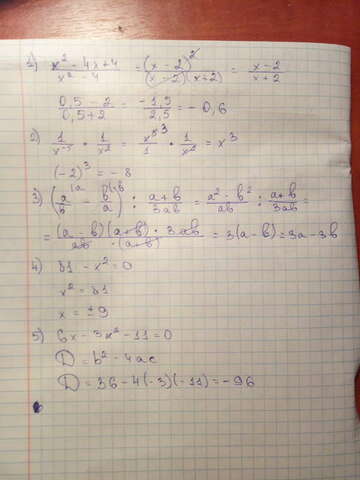 1) x² - 4x + 4 / x² - 4 = (x - 2)² / (x - 2)(x + 2) = x - 2 / x + 2
0,5 - 2 / 0,5 + 2 = -1,5 / 2,5 = - 0,6
2) 1 / x⁻⁵ · 1 / x² = x⁵ ³ / 1 · 1 / x² = x³
(-2)³ = - 8
3) (a / b - b / a) : a + b / 3ab = a² - b² / ab : a + b / 3ab =
= (a - b)(a + b) · 3ab / ab · (a + b) = 3(a - b) = 3a - 3b
4) 81 - x² = 0
x² = 81
x = ± 9
5) 6x - 3x² - 11 = 0
D = b² - 4ac
D = 36 - 4(-3)(-11) = - 96